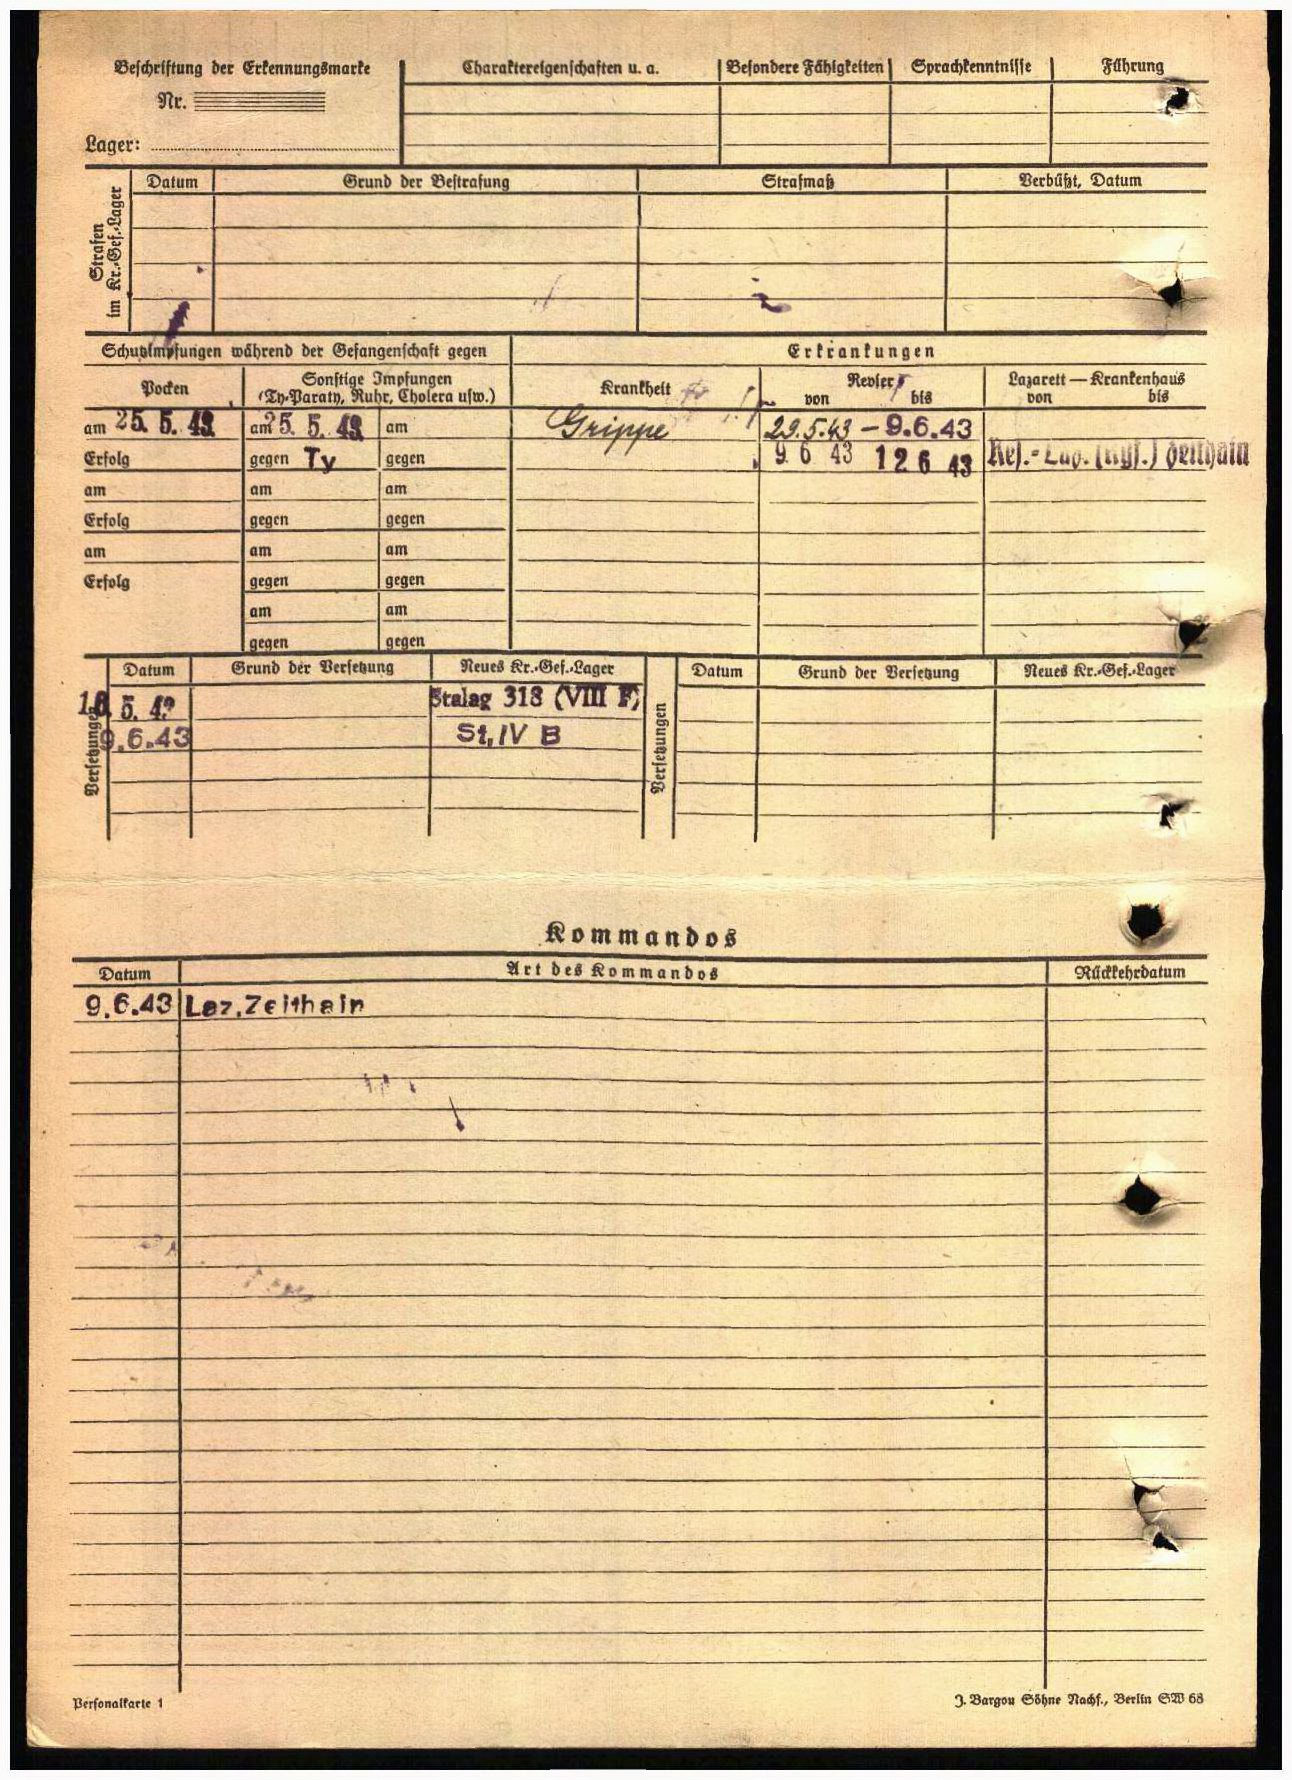 Beschriftung der Erkennungsmarke
Nr.
Lager:
Charaktereigenschaften u. a. Besondere Fähigkeiten Sprachkenntnisse Führung
Strafen im Kr.-Gef.-Lager
Datum Grund der Bestrafung Strafmaß Verbüßt, Datum
Schutzimpfungen während der Gefangenschaft gegen Erkrankungen
Pocken Sonstige Impfungen (Ty-Paraty, Ruhr, Cholera usw.) Krankheit Revier von bis Lazarett — Krankenhaus von bis
am 25. 5. 43 am 25. 5. 43 am Grippe 29.5.43 - 9.6.43
Erfolg gegen Ty gegen 9 6 43 12 6 43 Res.-Laz. Zeithain
am am am
Erfolg gegen gegen
am am am
Erfolg gegen gegen
am am
gegen gegen
Versetzungen Datum Grund der Versetzung Neues Kr.-Gef.-Lager Versetzungen Datum Grund der Versetzung Neues Kr.-Gef.-Lager
5. 43 Stalag 318 (VIII F)
9.6.43 St. IV B
Kommandos
Datum Art des Kommandos Rückkehrdatum
9.6.43 Laz. Zeithain
Personalkarte 1 J. Bargou Söhne Nachf., Berlin SW 68